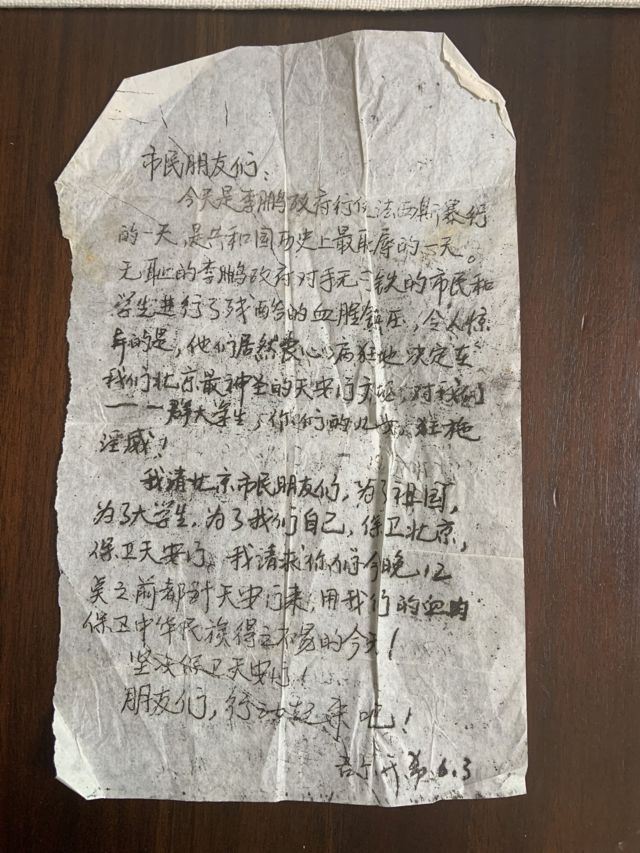 市民朋友们:
今天是李鹏政府行使法西斯暴行
的一天,是共和国历史上最耻辱的一天。
无耻的李鹏政府对手无寸铁的市民和
学生进行了残酷的血腥镇压,令人惊
奇的是,他们居然丧心病狂地决定在
我们北京最神圣的天安门广场,对我们
——群大学生,你们的儿女狂施
淫威!
我请北京市民朋友们,为了祖国,
为了大学生,为了我们自己,保卫北京,
保卫天安门。我请求你们今晚12
点之前都到天安门来,用我们的血肉
保卫中华民族得之不易的今天!
坚决保卫天安门!
朋友们,行动起来吧!
6.3